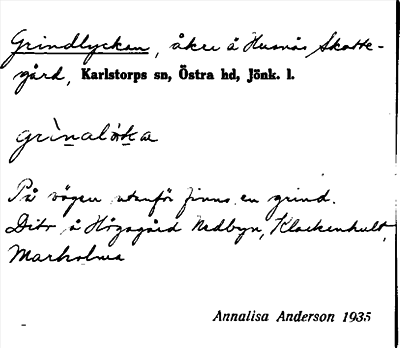 Grindlyckan, åker å Husnäs Skatte-
gård, Karlstorps sn, Östra hd, Jönk. l.
På vägen utanför finns en grind.
Dito å Högagård Nedbyn, Klockenhult,
Marholma
Annalisa Anderson 1935